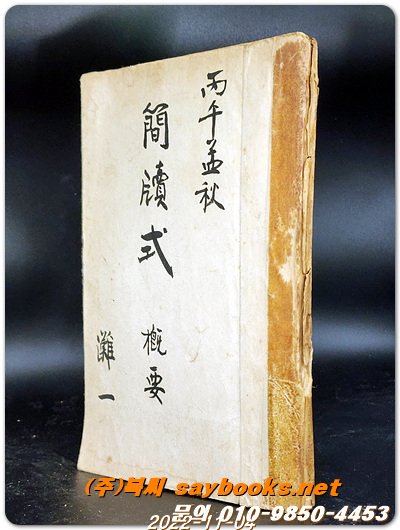 丙午孟秋
簡牘式 概要
灘一
(주)북씨 saybooks.net
문의 010-9850-4453
2022-11-04